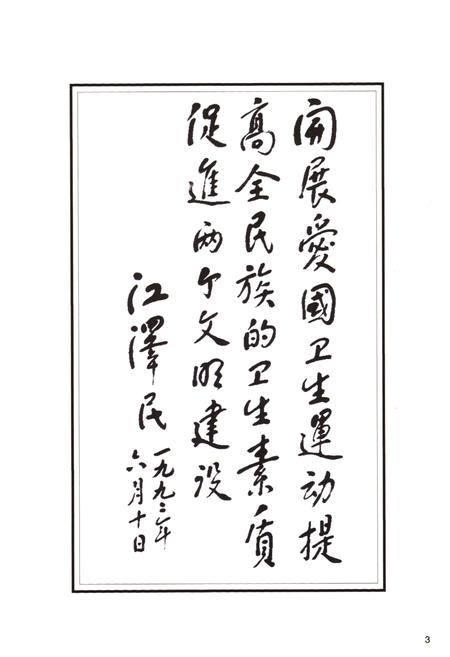 開展愛國卫生運动提
高全民族的卫生素质
促進两个文明建设
江澤民
一九九二年
六月十日
3